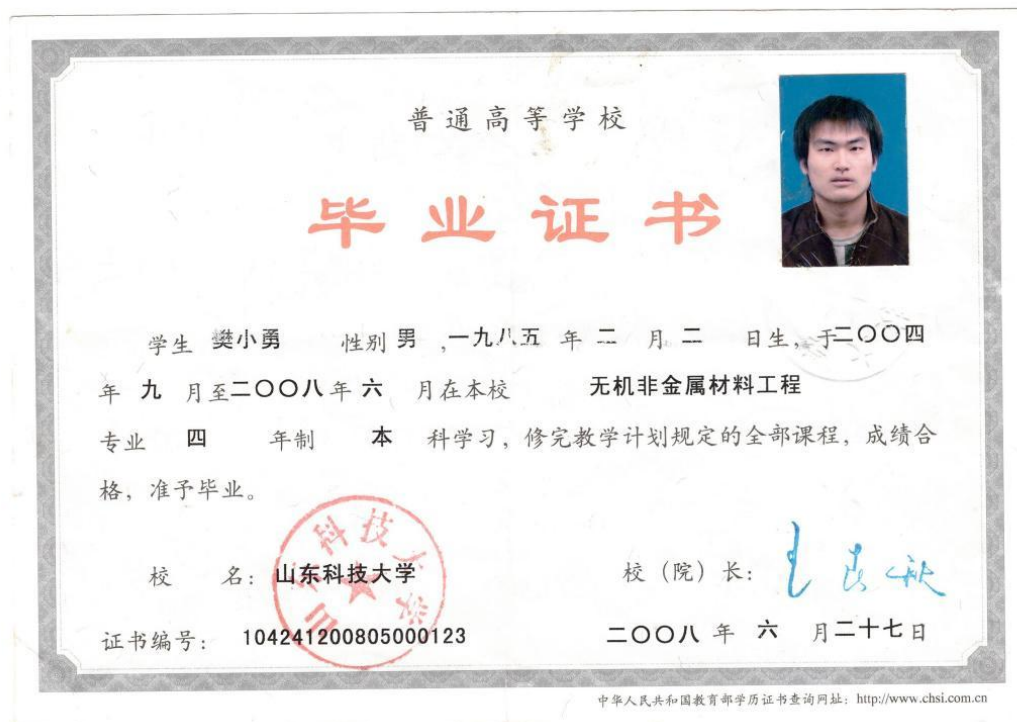 普通高等学校
毕业证书
学生 樊小勇 性别 男 ,一九八五 年 二 月 二 日生，于二〇〇四
年 九 月至二〇〇八年 六 月在本校 无机非金属材料工程
专业 四 年制 本 科学习，修完教学计划规定的全部课程，成绩合
格，准予毕业。
山东科技大学
校 名：山东科技大学 校（院）长：
证书编号： 104241200805000123 二〇〇八 年 六 月二十七日
中华人民共和国教育部学历证书查询网址：http://www.chsi.com.cn